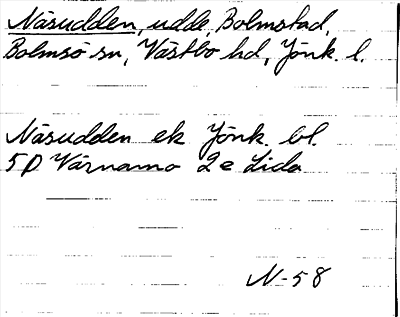 Näsudden, udde, Bolmstad,
Bolmsö sn, Västbo hd, Jönk. l.
Näsudden ek Jönk. bl.
5D Värnamo 2e Lida
N-58